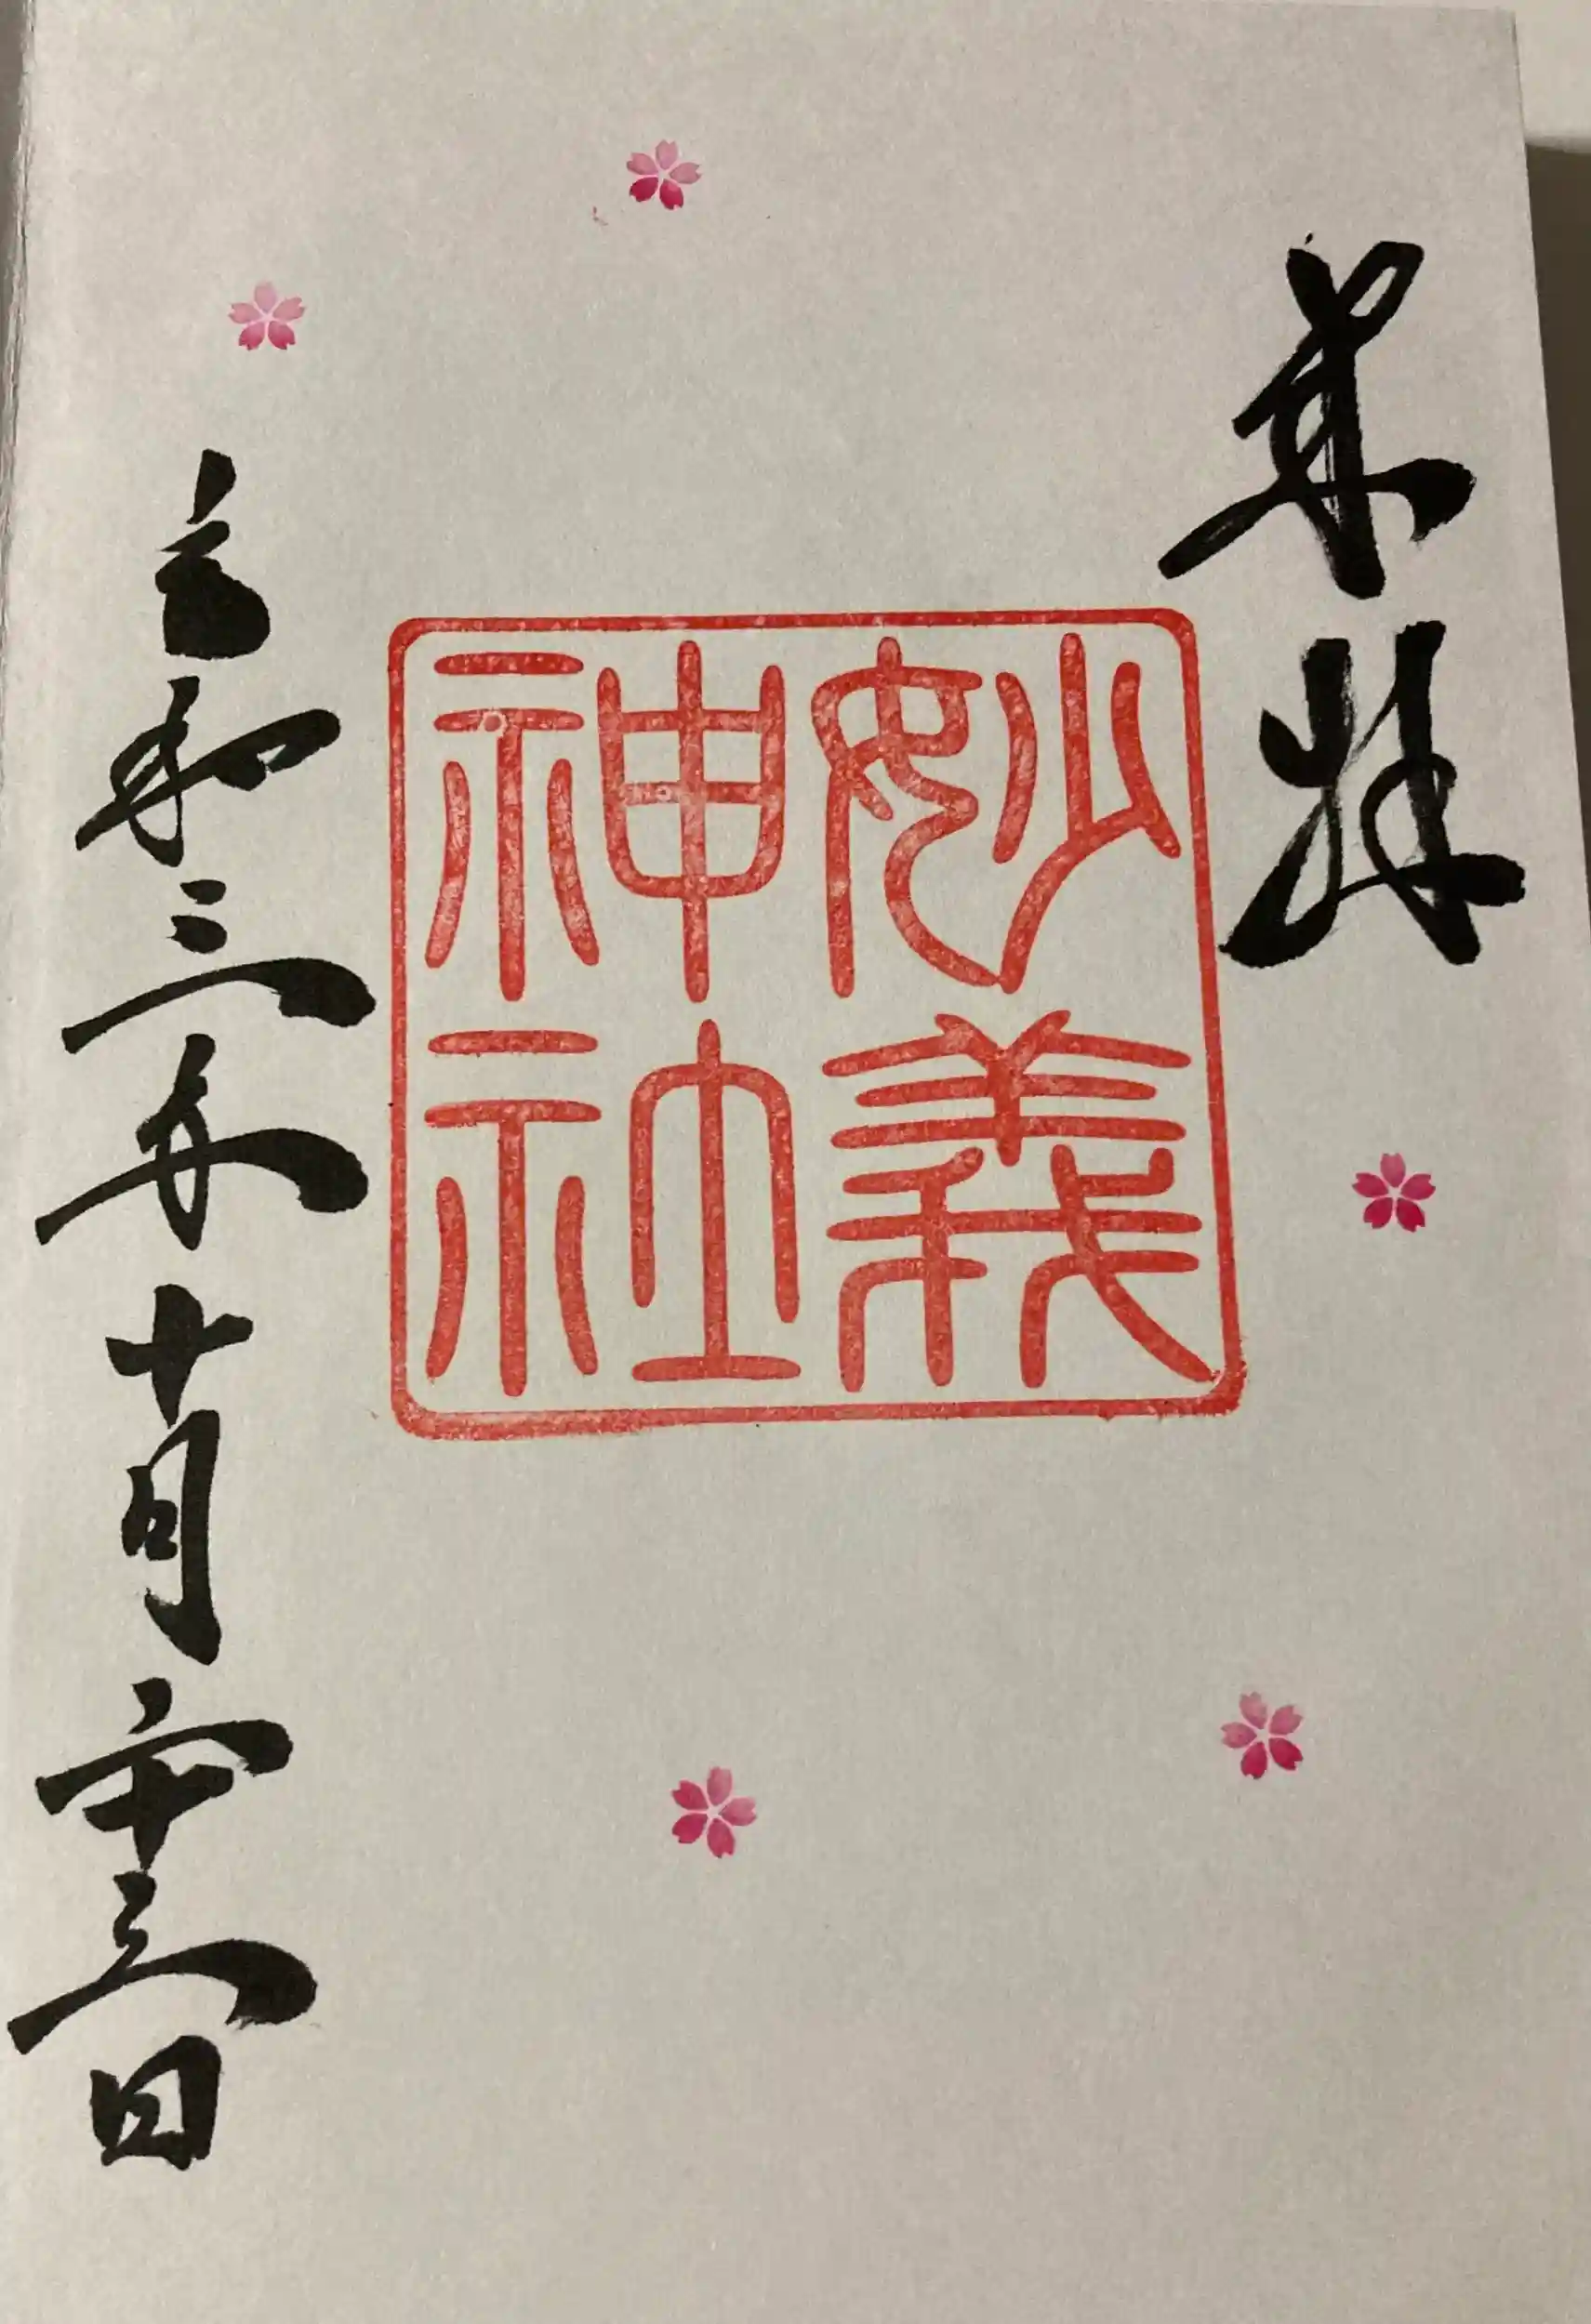 奉拝
妙義
神社
令和三年十月二十三日